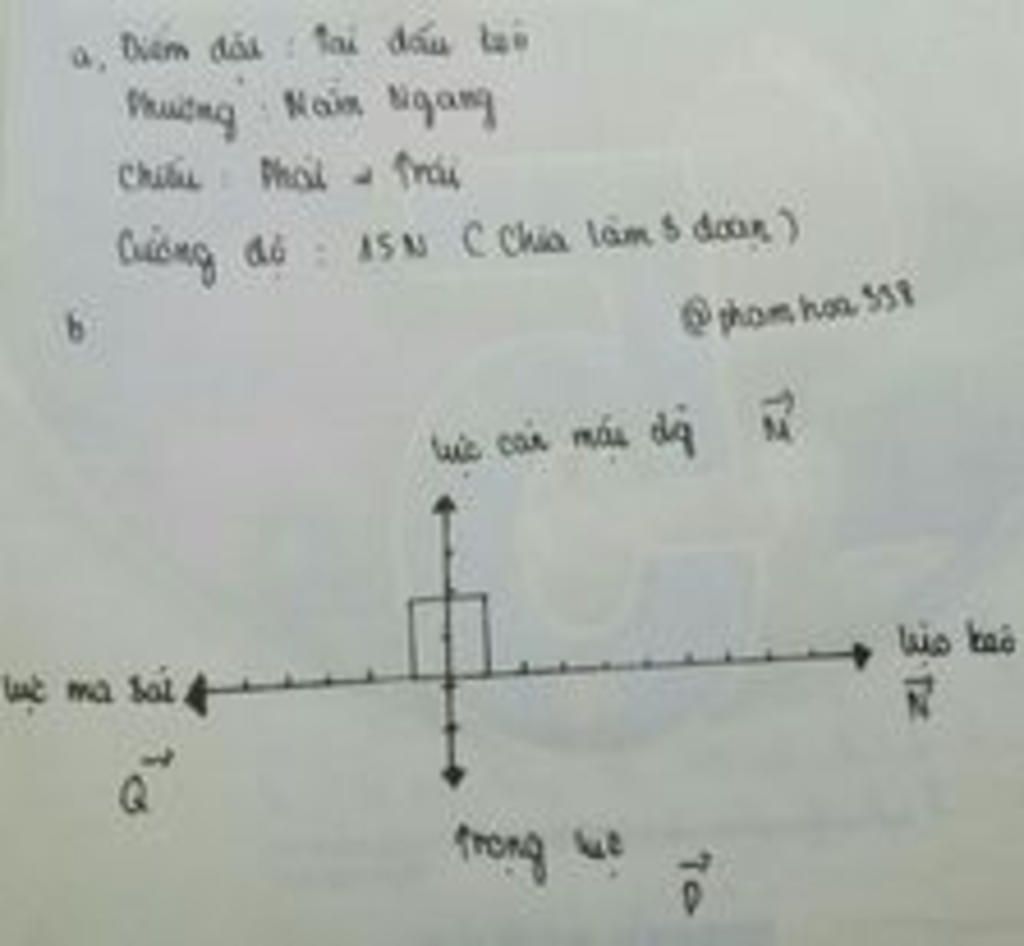 a, Điểm đặt : Tại đầu kéo
Phương : Nằm Ngang
Chiều : Phải → Trái
Cường độ : 15N ( Chia làm 3 đoạn )
@phamhoa338
b
lực cản mặt
lực kéo
lực ma sát
N
Q
Trọng lực
P